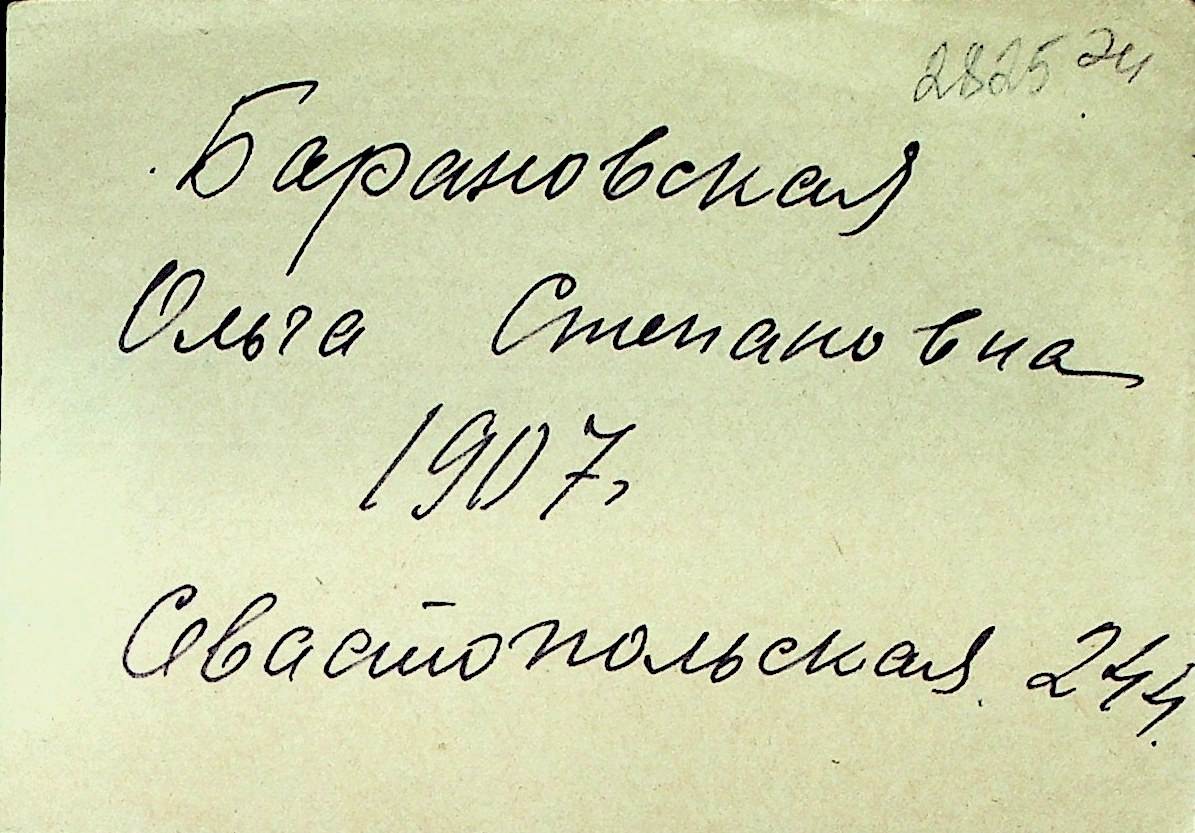 2825
Барановская
Ольга Степановна
1907,
Севастопольская 244.